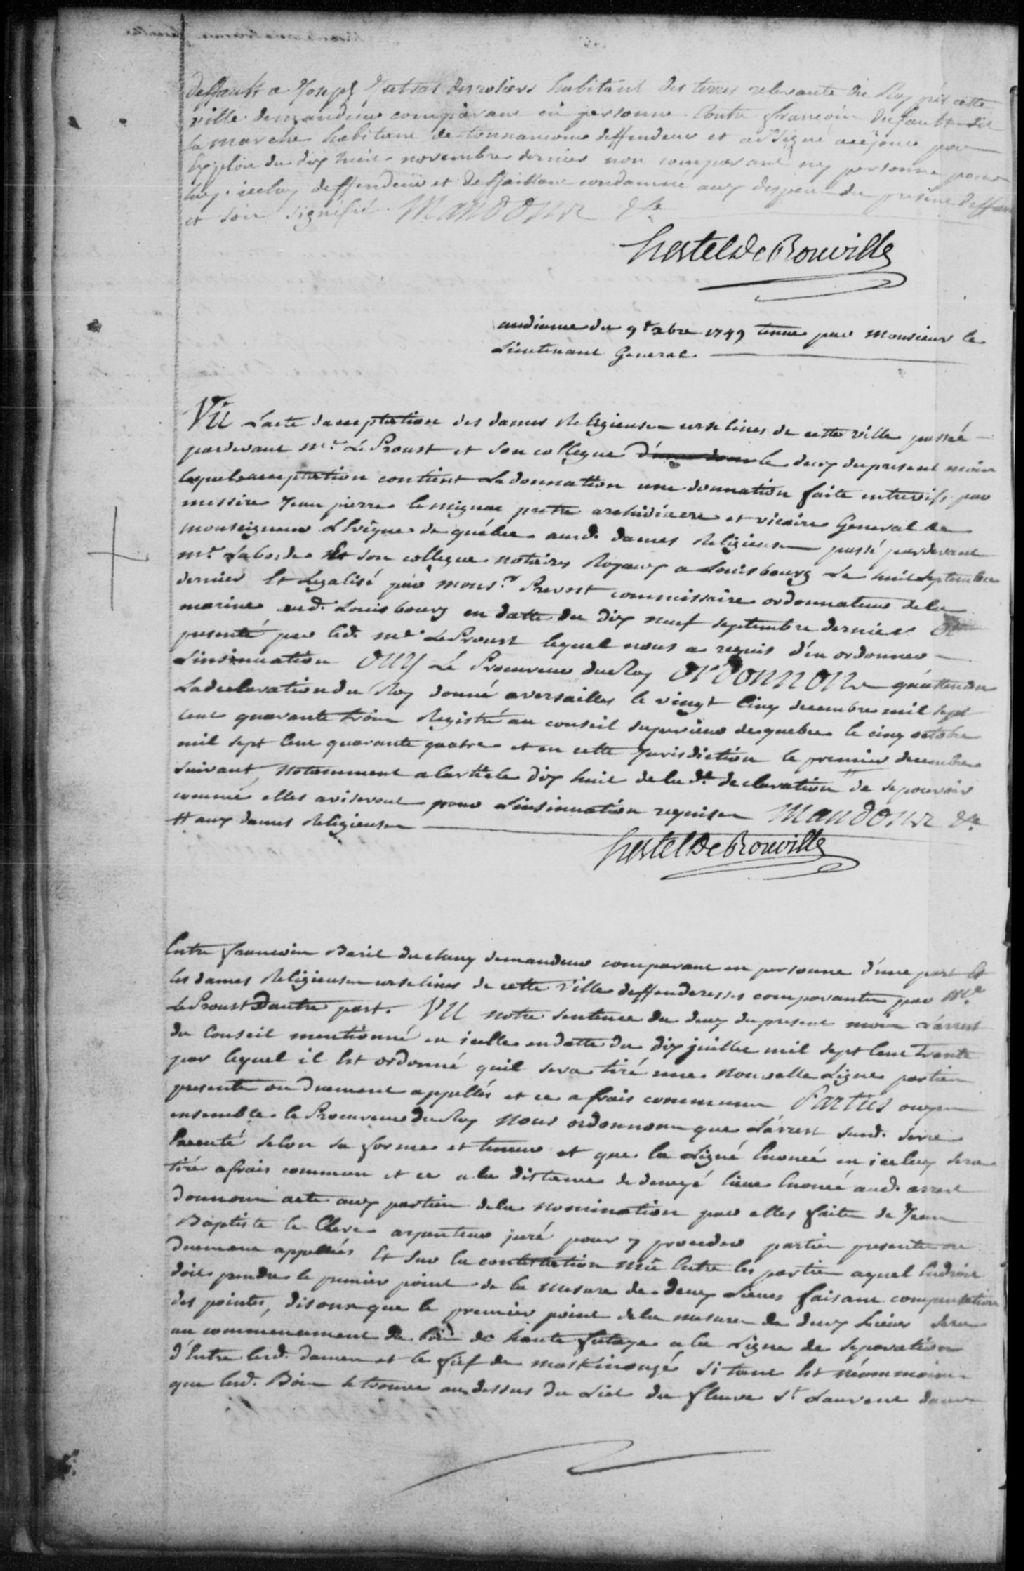 deffault a Joseph habitant des terres relevante du Roy pres cette
ville demandeur comparant en personne Contre francois dit
la marche habitant de deffendeur et assigné par
Exploit du dix huit novembre dernier non comparant ny personne pour
luy, iceluy deffendeur et deffaillant condamné aux depens du present deffaut
et soit signiffié Mandons &c
hertel de Rouville
audiance du 9e xbre 1749 tenue par Monsieur le
Lieutenant General
Vû L'acte dacceptation des dames Religieuses urselines de cette ville passé
pardevant me. Le Proust et son collegue le deux du present mois
laquelle acceptation contient une donnation faite entrevifs par
messire Jean pierre de miniac pretre archidiacre et vicaire General de
monseigneur L'Eveque de quebec ausd. dames Religieuses passé pardevant
me. Laborde Et son collegue notaires Royaux a Louisbourg Le huit septembre
dernier Et Legalisé par monsr. Prevost commissaire ordonnateur de la
marine aud. Louisbourg en datte du dix neuf septembre dernier
presenté par led. me. Le Proust lequel nous a requis d'en ordonner
L'insinuation OUY Le Procureur du Roy ORDONNONS quattendu
La declaration du Roy donné a versailles le vingt cinq decembre mil sept
cent quarante trois Registré au conseil superieur de quebec le cinq octobre
mil sept cent quarante quatre et en cette Jurisdiction le premier decembre
suivant, notamment a larticle dix huit de lad. declaration // de se pouvoir
comme elles aviseront pour L'insinuation requise Mandons &c
// aux dames Religieuses
hertel de Rouville
Entre francois Baril ducheny demandeur comparant en personne d'une part Et
les dames Religieuses urselines de cette ville deffenderesses comparantes par Me.
Le Proust d'autre part. VU notre sentence du deux du present mois L'arrest
du Conseil mentionné en icelle en datte du dix juillet mil sept cent trente
par lequel il Est ordonné quil sera tiré une nouvelle Ligne parties
presente ou duement appellés et ce a frais communs Parties ouyes
ensemble le Procureur du Roy Nous ordonnons que L'arrest susd. sera
Executé selon sa forme et teneur et que la Ligne Enoncé en iceluy sera
tiré a frais commun et ce a la distance de Lieue Enoncé aud. arrest
donnons acte aux parties de la nomination par elles faite de Jean
Baptiste le Clerc arpenteur juré pour y proceder parties presente ou
duement appellés Et sur la contestation mûe Entre les parties aquel Endroit
doit prendre le premier point de la mesure de deux Lieues faisant compensation
des pointes, disons que le premier point de la mesure de deux Lieues sera
au commencement du Bois de haute futaye a la Ligne de separation
d'Entre lesd. dames et le fief de maskinongé si tant Est neanmoins
que led. Bois se trouve au dessus du Lict du fleuve St. Laurent dans